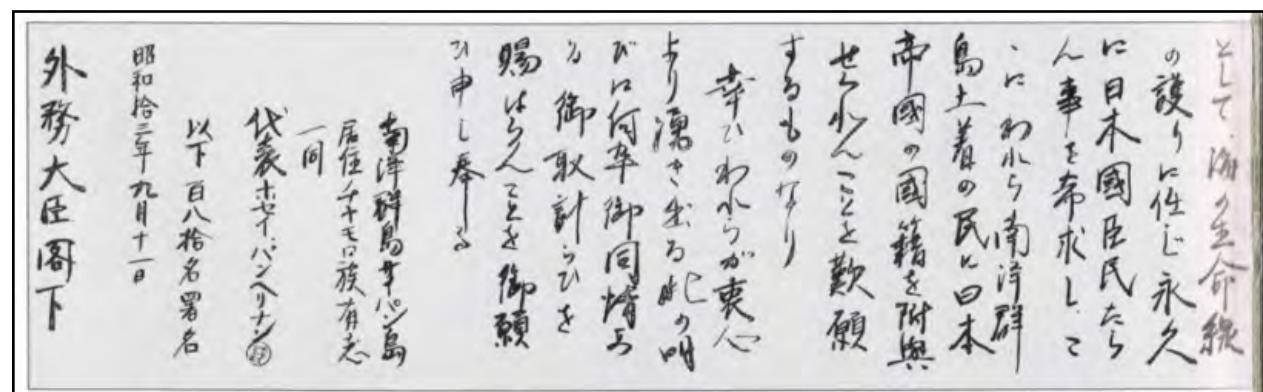 として、海の生命線
の護りに任じ永久
に日本國臣民たら
ん事を希求しこ
ゝにわれら南洋群
島土着の民に日本
帝國の國籍を附與
せられんことを歎願
するものなり
幸ひわれらが衷心
より湧き出る此の
びに何卒御同情
る御取計らひを
賜はらんことを御願
ひ申し奉る
南洋群島サイパン島
居住チヤモロ族有志
一同
代表ホセイ、パンヘリナン
以下百八拾名署名
昭和拾三年九月十一日
外務大臣閣下